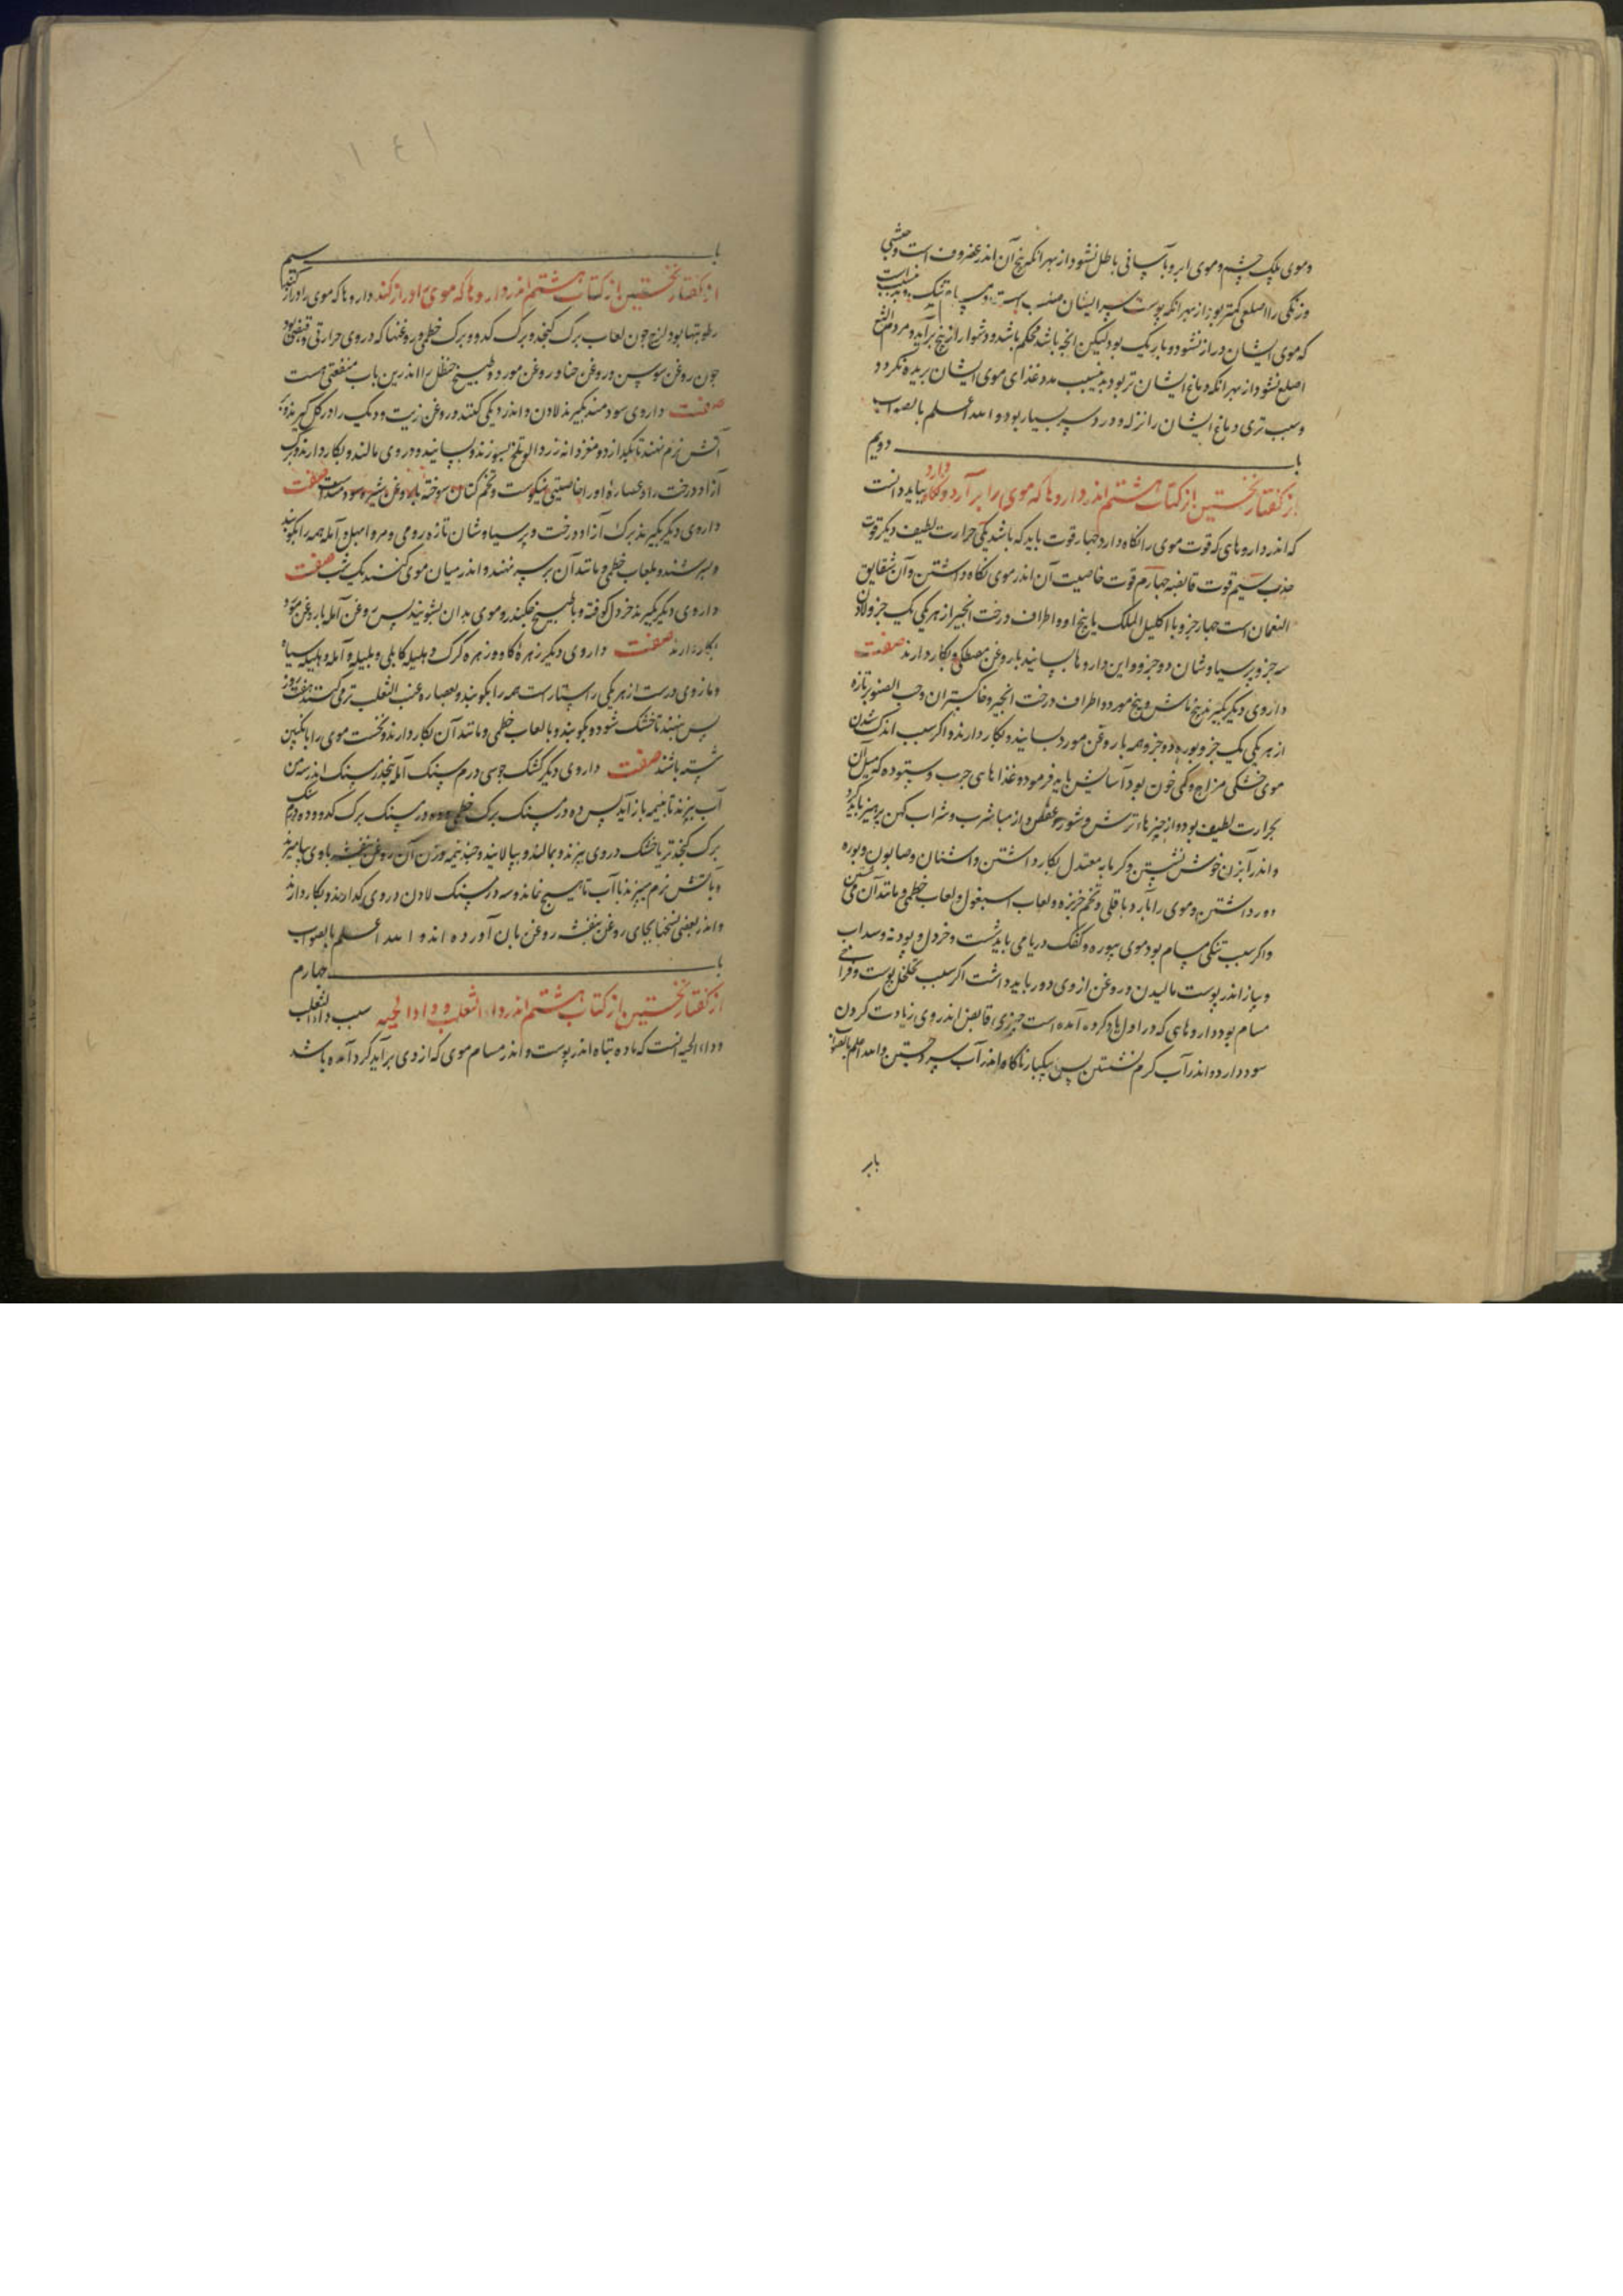 وموی پلک چشم وموی ابرو بآسانی باطل نشود از بهر انکه بیخ آن اندر غضروف است وحبشی
وزنگی را اصلعی کمتر بود از بهر انکه پوست سر ایشان است
که موی ایشان دراز نشود و باریک بود لیکن انچه باشد محکم باشد و دشوار از بیخ برآید ومردم الثغ
اصلع نشود از بهر انکه دماغ ایشان تر بود بدینسبب مدد غذای موی ایشان بریده نکردد
وسبب تری دماغ ایشان را نزله و درد سر بسیار بود والله اعلم بالصواب
باب دویم
از کفتار نخستین از کتاب هشتم اندر داروها که موی را برآرد ونکاه دارد بباید دانست
که اندر داروهای که قوت موی را نکاه دارد چهار قوت باید که باشد یکی حرارت لطیف دیکر قوت
جذب سیم قوت قابضه چهارم قوت خاصیت آن اندر موی نکاه داشتن وآن شقایق
النعمان است چهار جزو با اکلیل الملک یا بیخ او و اطراف درخت انجیر از هر یکی یک جزو لادن
سه جزو برسیاوشان دو جزو واین داروها بسایند با روغن مصطکی وبکار دارند صفت
داروی دیکر بکیرند بیخ ماش وبیخ مورد و اطراف درخت انجیر وخاکستر آن وحب الصنوبر تازه
از هر یکی یک جزو بوره دو جزو همه با روغن مورد بسایند وبکار دارند واکر سبب اندک شدن
موی خشکی مزاج وکمی خون بود آسایش باید فرمود و غذاهای چرب وستوده که میل آن
بحرارت لطیف بود و از چیزهاء ترش وشور وعفص واز مباشرت وشراب کهن پرهیز باید کرد
واندر آبزن خوش نشستن وکرمابه معتدل بکار داشتن واشنان وصابون وبوره
دور داشتن وموی را بآرد باقلی وتخم خربزه ولعاب اسبغول ولعاب خطمی ومانند آن
واکر سبب تنکی مسام بود موی ببوره وکفک دریا می باید شست وخردل وپودنه وسداب
وپیاز اندر پوست مالیدن و روغن از وی دور باید داشت اکر سبب تخلخل پوست وفراخی
مسام بود داروهای که در اول یاد کرده آمده است چیزی قابض اندر وی زیادت کردن
سود دارد واندر آب کرم نشستن پس بیکبار ناکاه اندر آب سرد جستن والله اعلم بالصواب
باب
باب سیم
از کفتار نخستین از کتاب هشتم اندر داروها که موی را دراز کند داروها که موی را دراز کند
رطوبتها بود لزج چون لعاب برک کنجد وبرک کدو وبرک خطمی و روغنها که در وی حرارتی وقبضی بود
چون روغن سوسن و روغن حنا و روغن مورد وطبیخ حنظل را اندرین باب منفعتی هست
صفت داروی سودمند بکیرند لادن واندر دیکی کنند و روغن زیت ودیک را در کل کیرند وبر
آتش نرم نهند تا بکدازد و مغز دانه زردالو تلخ بسوزند وبسایند ودر وی مالند وبکار دارند وبرک
آزاد درخت را وعصارهٔ او را خاصیتی نیکوست وتخم کتان سوخته با روغن شیره سودمند است صفت
داروی دیکر بکیرند برک آزاد درخت وبرسیاوشان تازه رومی ومر و ابهل و آمله همه را بکوبند
وبسرشند وبلعاب خطمی ومانند آن بر سر نهند واندر میان موی کنند یک شب صفت
داروی دیکر بکیرند خردل کوفته وبا طبیخ چکندر وموی بدان بشویند پس روغن آمله با روغن مورد
بکار دارند صفت داروی دیکر زهرهٔ کاو وزهره کرک وهلیله کابلی وبلیله وآمله وهلیله سیاه
ومازوی درست از هر یکی راست همه را بکوبند وبعصاره عنب الثعلب تر می کنند هفت روز
پس بنهند تا خشک شود وبکوبند وبا لعاب خطمی ومانند آن بکار دارند ونخست موی را بانکبین
شسته باشند صفت داروی دیکر کشک جو سی درم سنک آمله پنجدرم سنک اندر سه من
آب بپزند تا بنیمه باز آید پس ده درم سنک برک خطمی وده درم سنک برک کدو وده درم سنک
برک کنجد تر یا خشک در وی بپزند وبمالند وبپالایند وچند نیمه وزن آن روغن بنفشه با وی بیامیزند
وبآتش نرم میپزند تا آب تا هیچ نماند وسه درم سنک لادن در وی کدازند وبکار دارند
واندر بعضی نسخها بجای روغن بنفشه روغن بان آورده اند والله اعلم بالصواب
باب چهارم
از کفتار نخستین از کتاب هشتم اندر داء الثعلب و داء الحیه سبب داء الثعلب
وداء الحیه آنست که ماده تباه اندر پوست واندر مسام موی که از وی برآید کرد آمده باشد